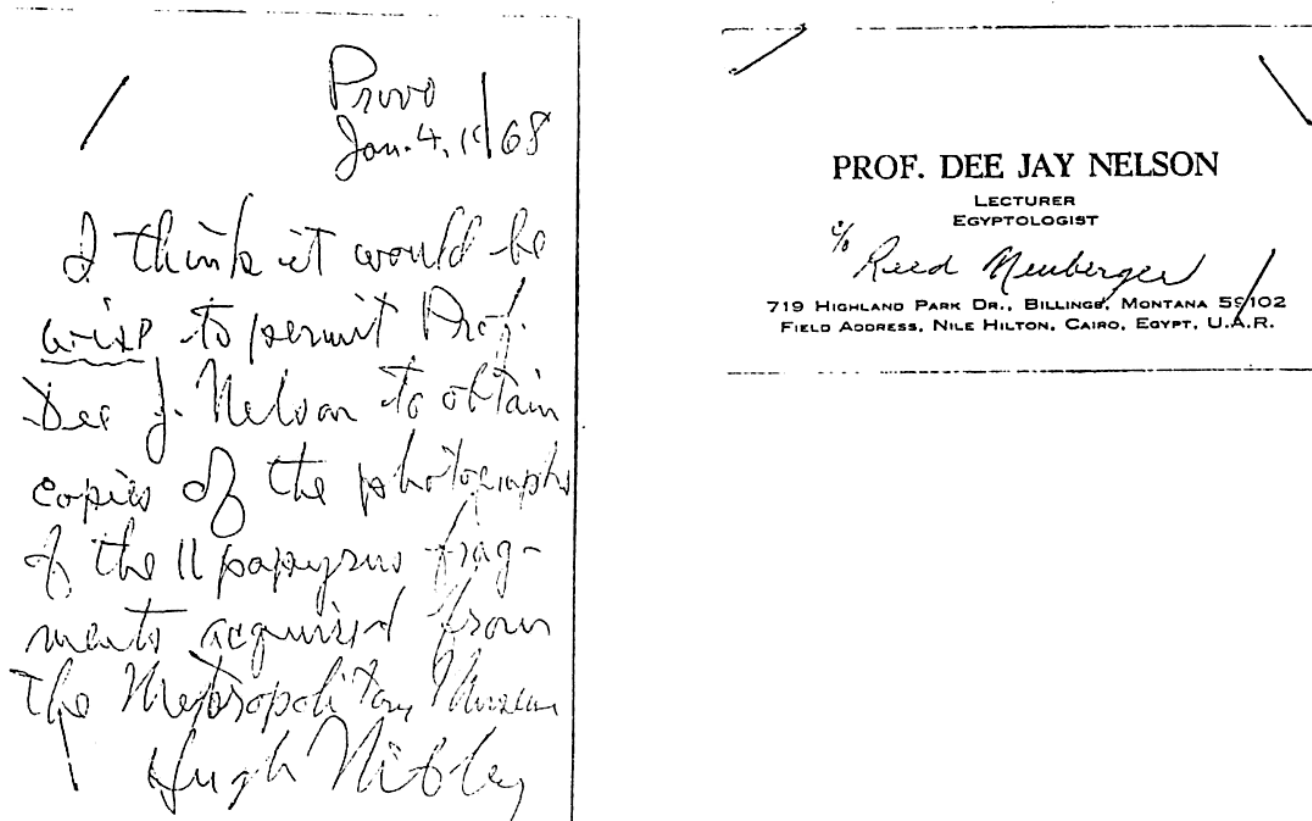 Provo
Jan. 4, 1968
I think it would be
wise to permit Prof.
Dee J. Nelson to obtain
copies of the photographs
of the 11 papyrus frag-
ments acquired from
the Metropolitan Museum
Hugh Nibley
PROF. DEE JAY NELSON
LECTURER
EGYPTOLOGIST
c/o Reed Neuberger
719 HIGHLAND PARK DR., BILLINGS, MONTANA 59102
FIELD ADDRESS, NILE HILTON, CAIRO, EGYPT, U.A.R.